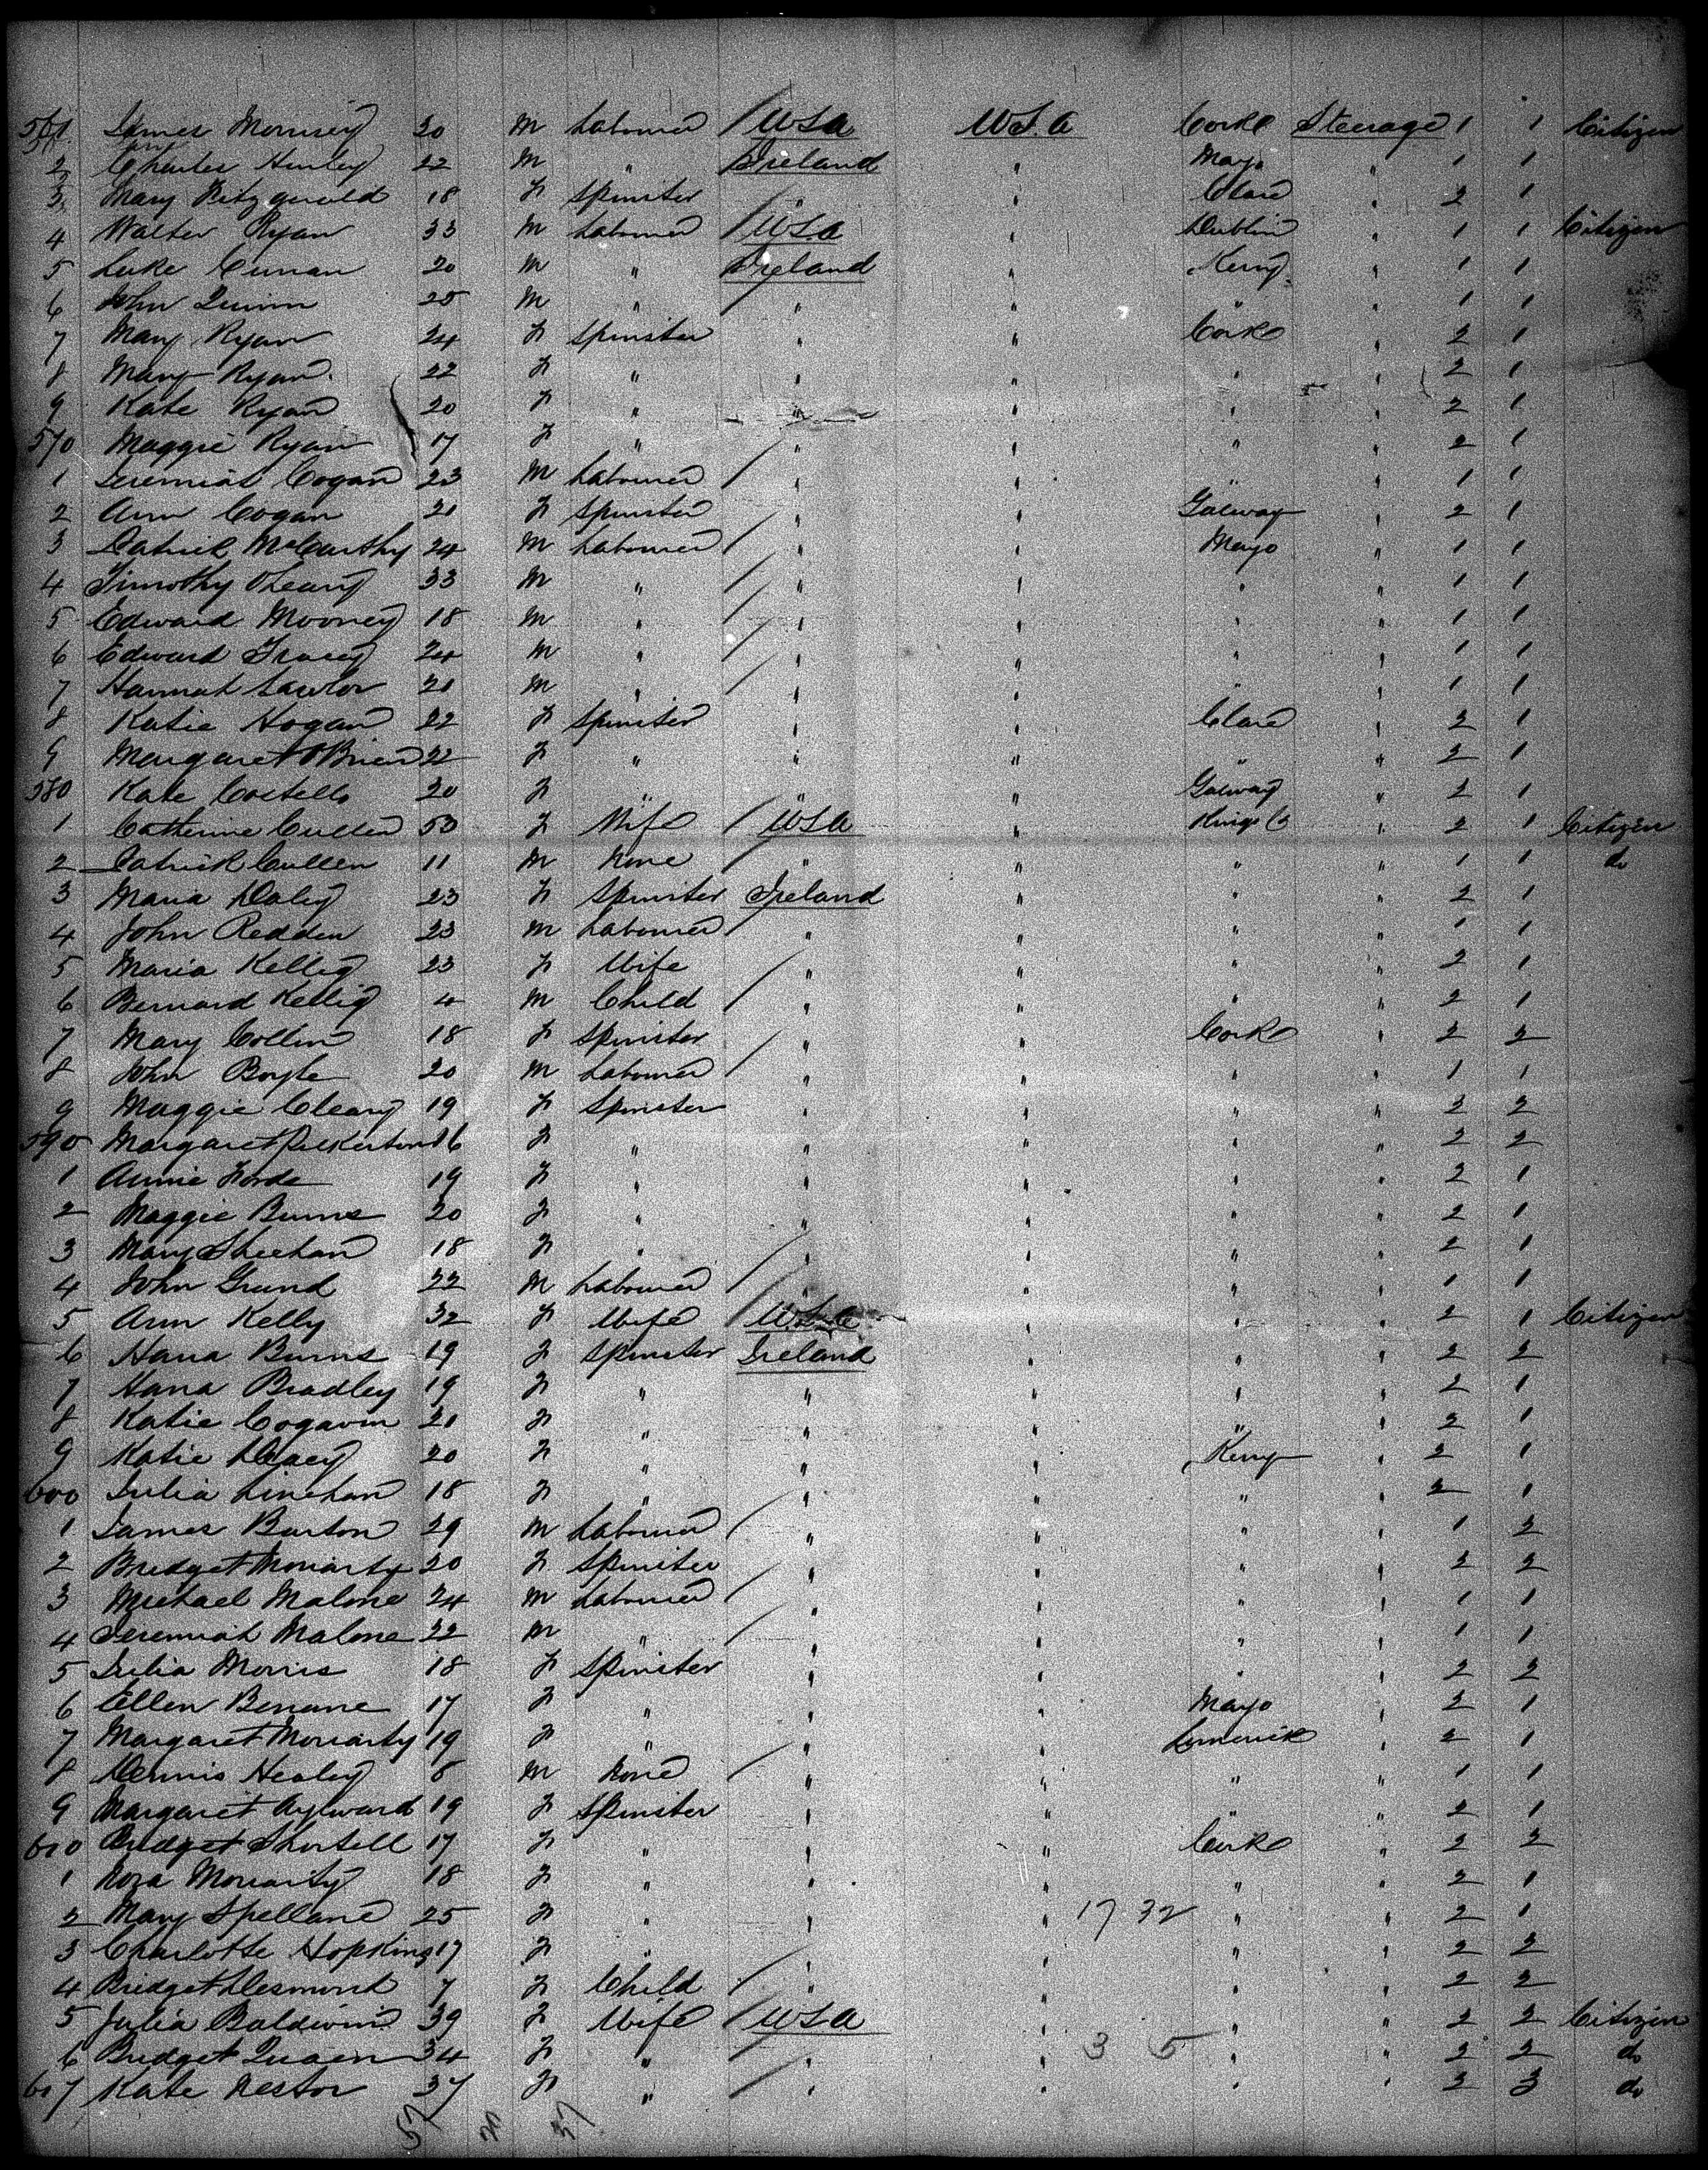 561 James Morrisey 30 m Labourer USA U.S.A Cork Steerage 1 1 Citizen
2 Charles Hurley 22 m " Ireland " Mayo " 1 1
3 Mary Fitzgerald 18 F Spinster " " Clare " 2 1
4 Walter Ryan 33 m Labourer U.S.A " Dublin " 1 1 Citizen
5 Luke Curran 20 m " Ireland " Kerry " 1 1
6 John Quinn 25 m " " " " " 1 1
7 Mary Ryan 24 F Spinster " " Cork " 2 1
8 Mary Ryan 22 F " " " " " 2 1
9 Kate Ryan 20 F " " " " " 2 1
570 Maggie Ryan 17 F " " " " " 2 1
1 Jeremiah Cogan 23 m Labourer " " " " 1 1
2 Ann Cogan 21 F Spinster " " Galway " 2 1
3 Patrick McCarthy 24 m Labourer " " Mayo " 1 1
4 Timothy O'Leary 33 m " " " " " 1 1
5 Edward Mooney 18 m " " " " " 1 1
6 Edward Tracey 24 m " " " " " 1 1
7 Hannah Lawlor 21 m " " " " " 1 1
8 Katie Hogan 22 F Spinster " " Clare " 2 1
9 Margaret O'Brien 22 F " " " " " 2 1
580 Kate Costello 20 F " " " Galway " 2 1
1 Catherine Cullen 53 F Wife USA " Kings Co " 2 1 Citizen
2 Patrick Cullen 11 m None " " " " 1 1 do
3 Maria Daley 23 F Spinster Ireland " " " 2 1
4 John Redden 23 m Labourer " " " " 1 1
5 Maria Kelly 23 F Wife " " " " 2 1
6 Bernard Kelly 4 m Child " " " " 2 1
7 Mary Collin 18 F Spinster " " Cork " 2 2
8 John Boyle 20 m Labourer " " " " 1 1
9 Maggie Cleary 19 F Spinster " " " " 2 2
590 Margaret Pilkerton 16 F " " " " " 2 2
1 Annie Forde 19 F " " " " " 2 1
2 Maggie Burns 20 F " " " " " 2 1
3 Mary Sheehan 18 F " " " " " 2 1
4 John Grund 22 m Labourer " " " " 1 1
5 Ann Kelly 32 F Wife U.S.A " " " 2 1 Citizen
6 Hana Burns 19 F Spinster Ireland " " " 2 2
7 Hana Bradley 19 F " " " " " 2 1
8 Katie Cogavin 21 F " " " " " 2 1
9 Katie Dacey 20 F " " " Kerry " 2 1
600 Julia Linehan 18 F " " " " " 2 1
1 James Barton 29 m Labourer " " " " 1 2
2 Bridget Moriarty 20 F Spinster " " " " 2 2
3 Michael Malone 24 m Labourer " " " " 1 1
4 Jeremiah Malone 22 m " " " " " 1 1
5 Julia Morris 18 F Spinster " " " " 2 2
6 Ellen Benane 17 F " " " Mayo " 2 1
7 Margaret Moriarty 19 F " " " Limerick " 2 1
8 Dennis Healey 8 m None " " " " 1 1
9 Margaret Aylward 19 F Spinster " " " " 2 1
610 Bridget Shortell 17 F " " " Cork " 2 2
1 Nora Moriarty 18 F " " " " " 2 1
2 Mary Spellane 25 F " " " 17 32 " " 2 1
3 Charlotte Hopkins 17 F " " " " " 2 2
4 Bridget Desmond 7 F Child " " " " 2 2
5 Julia Baldwin 39 F Wife USA " " " 2 2 Citizen
6 Bridget Quaen 34 F " " " 3 5 " " 2 2 do
617 Kate Nestor 37 F " " " " " 3 3 do
57 20 37